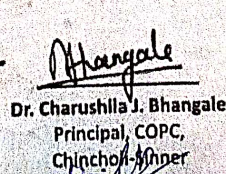 Bhangale
Dr. Charushila J. Bhangale
Principal, COPC,
Chincholi-Sinner